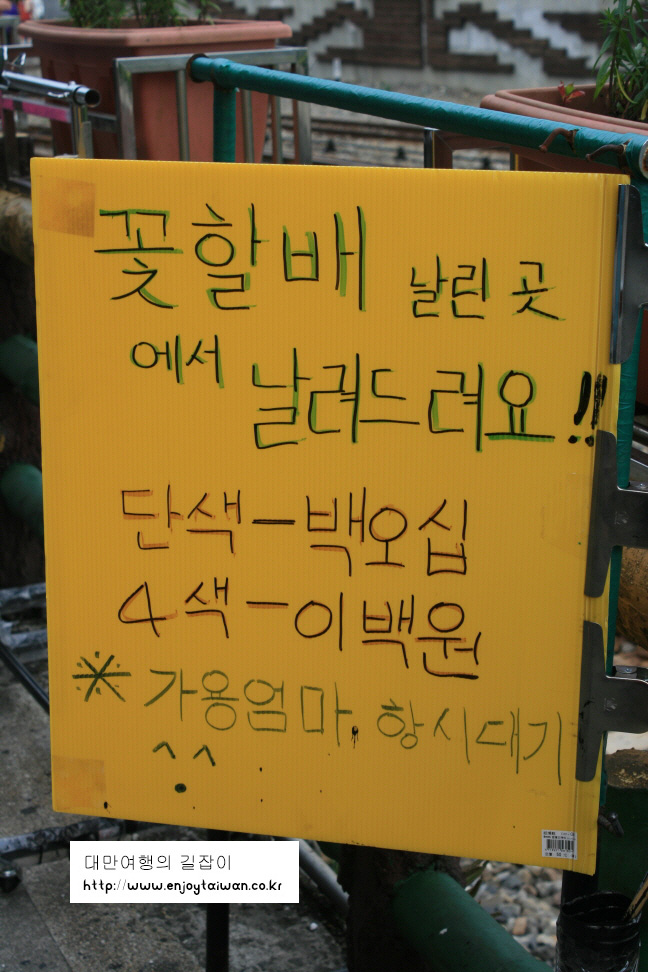 꽃할배 날린 곳
에서 날려드려요!!
단색-백오십
4색-이백원
※ 가용엄마, 항시대기
^^
대만여행의 길잡이
http://www.enjoytaiwan.co.kr